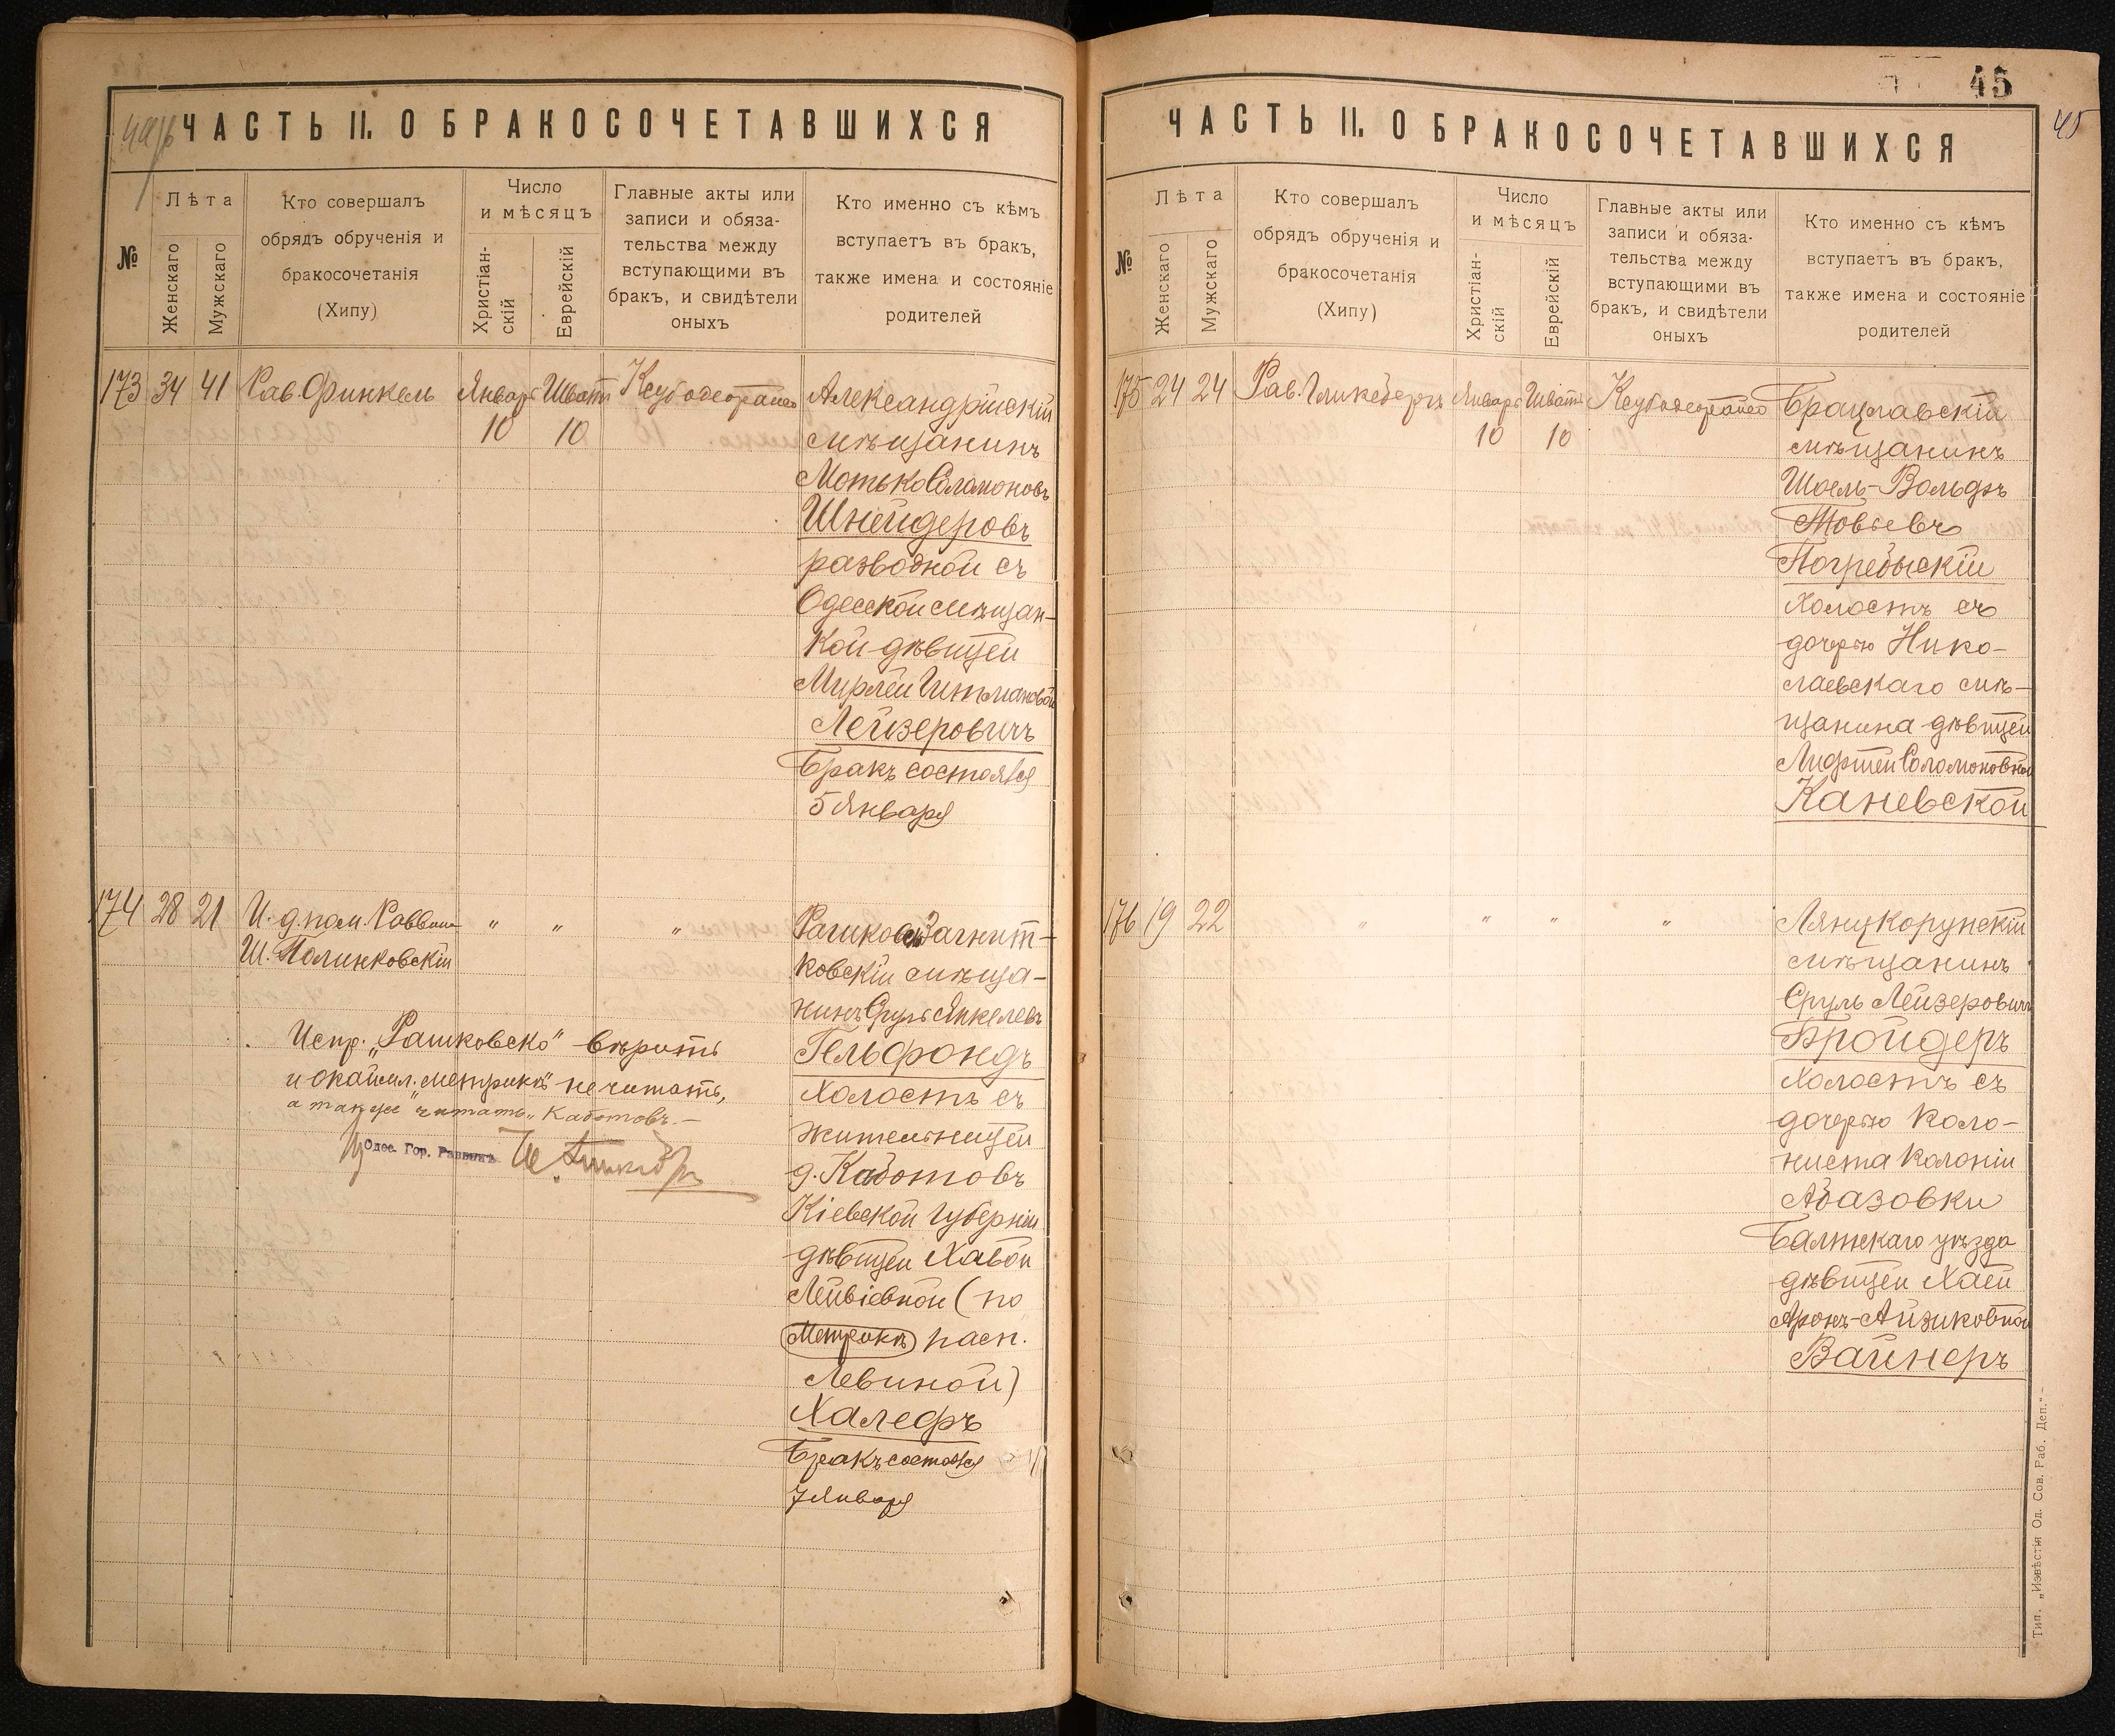 ЧАСТЬ II. О БРАКОСОЧЕТАВШИХСЯ
№
Лѣта
Женскаго
Мужскаго
Кто совершалъ
обрядъ обрученія и
бракосочетанія
(Хипу)
Число
и мѣсяцъ
Христіан-
скій
Еврейскій
Главные акты или
записи и обяза-
тельства между
вступающими въ
бракъ, и свидѣтели
оныхъ
Кто именно съ кѣмъ
вступаетъ въ бракъ,
также имена и состояніе
родителей
173 34 41 Рав. Финкель Январь 10 Шватъ 10
Александрійскій
мѣщанинъ
Мотько Соломоновъ
Шнейдеровъ
разводной съ
Одесской мѣщан-
кой дѣвицей
Лейзеровичъ
Бракъ состоялся
5 Января
174 28 21 И. д. пом. Раввина " " "
Ш. Полинковскій
Рашково-Загнит-
ковскій мѣща-
нинъ Сруль Янкелевъ
Гельфондъ
Холостъ съ
жительницей
д. Каботовъ
Кіевской губерніи
дѣвицей Хавой
Лейвіевной (по
Метрикѣ пасп.
Левиной)
Халефъ
Бракъ состоялся
7 Января
Испр. „Рашковско" вѣрить
и окайм. „метрикѣ" не читать,
а также читать „Каботовъ. —
Одес. Гор. Раввинъ
45
45
ЧАСТЬ II. О БРАКОСОЧЕТАВШИХСЯ
№
Лѣта
Женскаго
Мужскаго
Кто совершалъ
обрядъ обрученія и
бракосочетанія
(Хипу)
Число
и мѣсяцъ
Христіан-
скій
Еврейскій
Главные акты или
записи и обяза-
тельства между
вступающими въ
бракъ, и свидѣтели
оныхъ
Кто именно съ кѣмъ
вступаетъ въ бракъ,
также имена и состояніе
родителей
175 24 24 Рав. Гликсбергъ Январь 10 Шватъ 10
Брацлавскій
мѣщанинъ
Шоель-Вольфъ
Товьевъ
Погребыскій
Холостъ съ
дочерью Нико-
лаевскаго мѣ-
щанина дѣвицей
Соломоновной
Каневской
176 19 22 " " " "
Лянцкорунскій
мѣщанинъ
Сруль Лейзеровичъ
Бройдеръ
Холостъ съ
дочерью коло-
ниста колоніи
Абазовки
Балтскаго уѣзда
дѣвицей Хаей
Аронъ-Айзиковной
Вайнеръ
Тип. „Извѣстія Од. Сов. Раб. Деп.". —